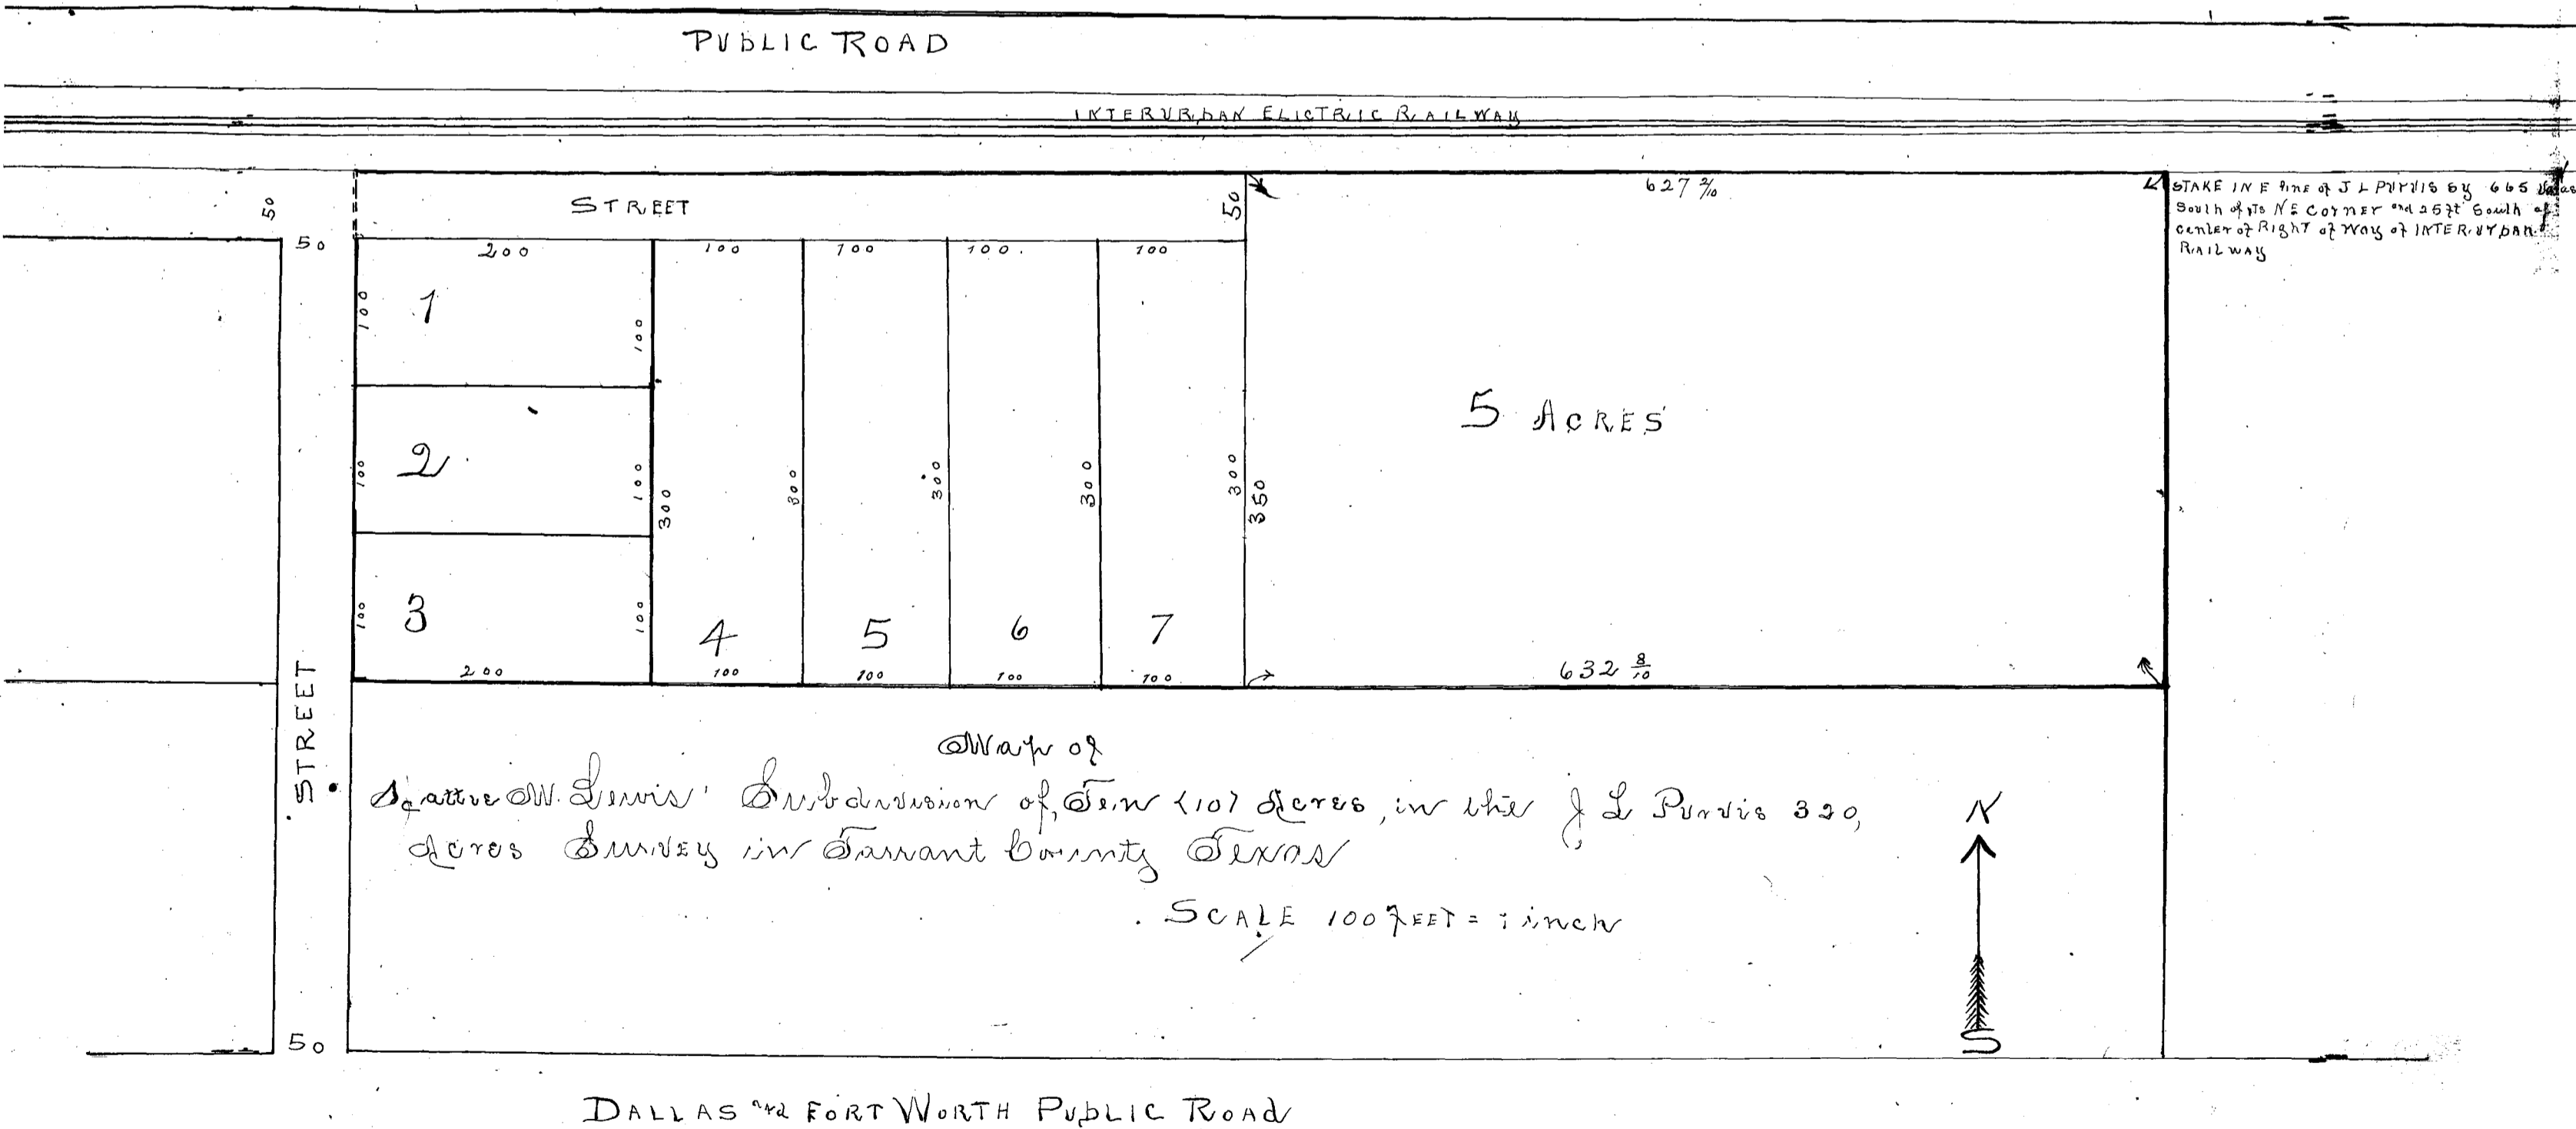 PUBLIC ROAD
INTERURBAN ELICTRIC RAILWAY
50
STREET
50
627 2/10
STAKE IN E line of J L PURVIS Sy 665 Varas
South of its NE CORNER and 25ft South of
center of Right of Way of INTERURBAN
RAILWAY
50
200
100
100
100.
100
100
1
100
5 ACRES
100
2
100
300
300
300
300
300
350
100
3
100
4
5
6
7
200
100
100
100
100
632 8/10
STREET
Map of
W. Lewis' Subdivision of Ten (10) Acres, in the J L Purvis 320,
Acres Survey in Tarrant County Texas
SCALE 100 FEET = 1 inch
N
S
50
DALLAS and FORT WORTH PUBLIC ROAD